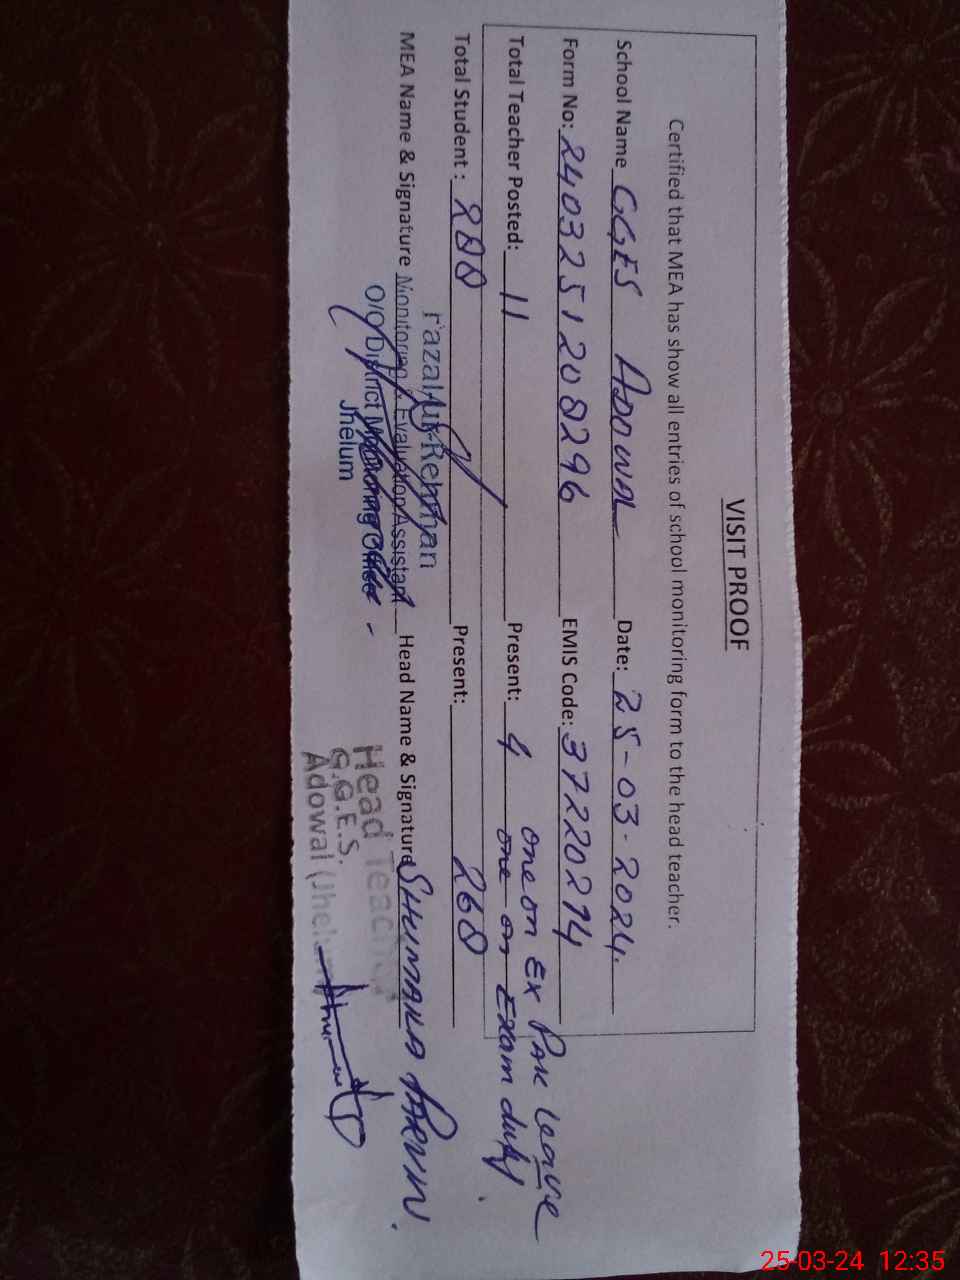 VISIT PROOF
Certified that MEA has show all entries of school monitoring form to the head teacher.
School Name GGES Adowal Date: 25-03-2024.
Form No: 2403251208296 EMIS Code: 37220274
one on Ex Pak Leave
Total Teacher Posted: 11 Present: 4 one on Exam duty.
Total Student: 280 Present: 260
Fazal-ur-Rehman
MEA Name & Signature Monitoring & Evaluation Assistant Head Name & Signature Shumaila Parvin.
O/O District Monitoring Officer
Jhelum
Head Teacher
G.G.E.S.
Adowal (Jhelum
25-03-24 12:35